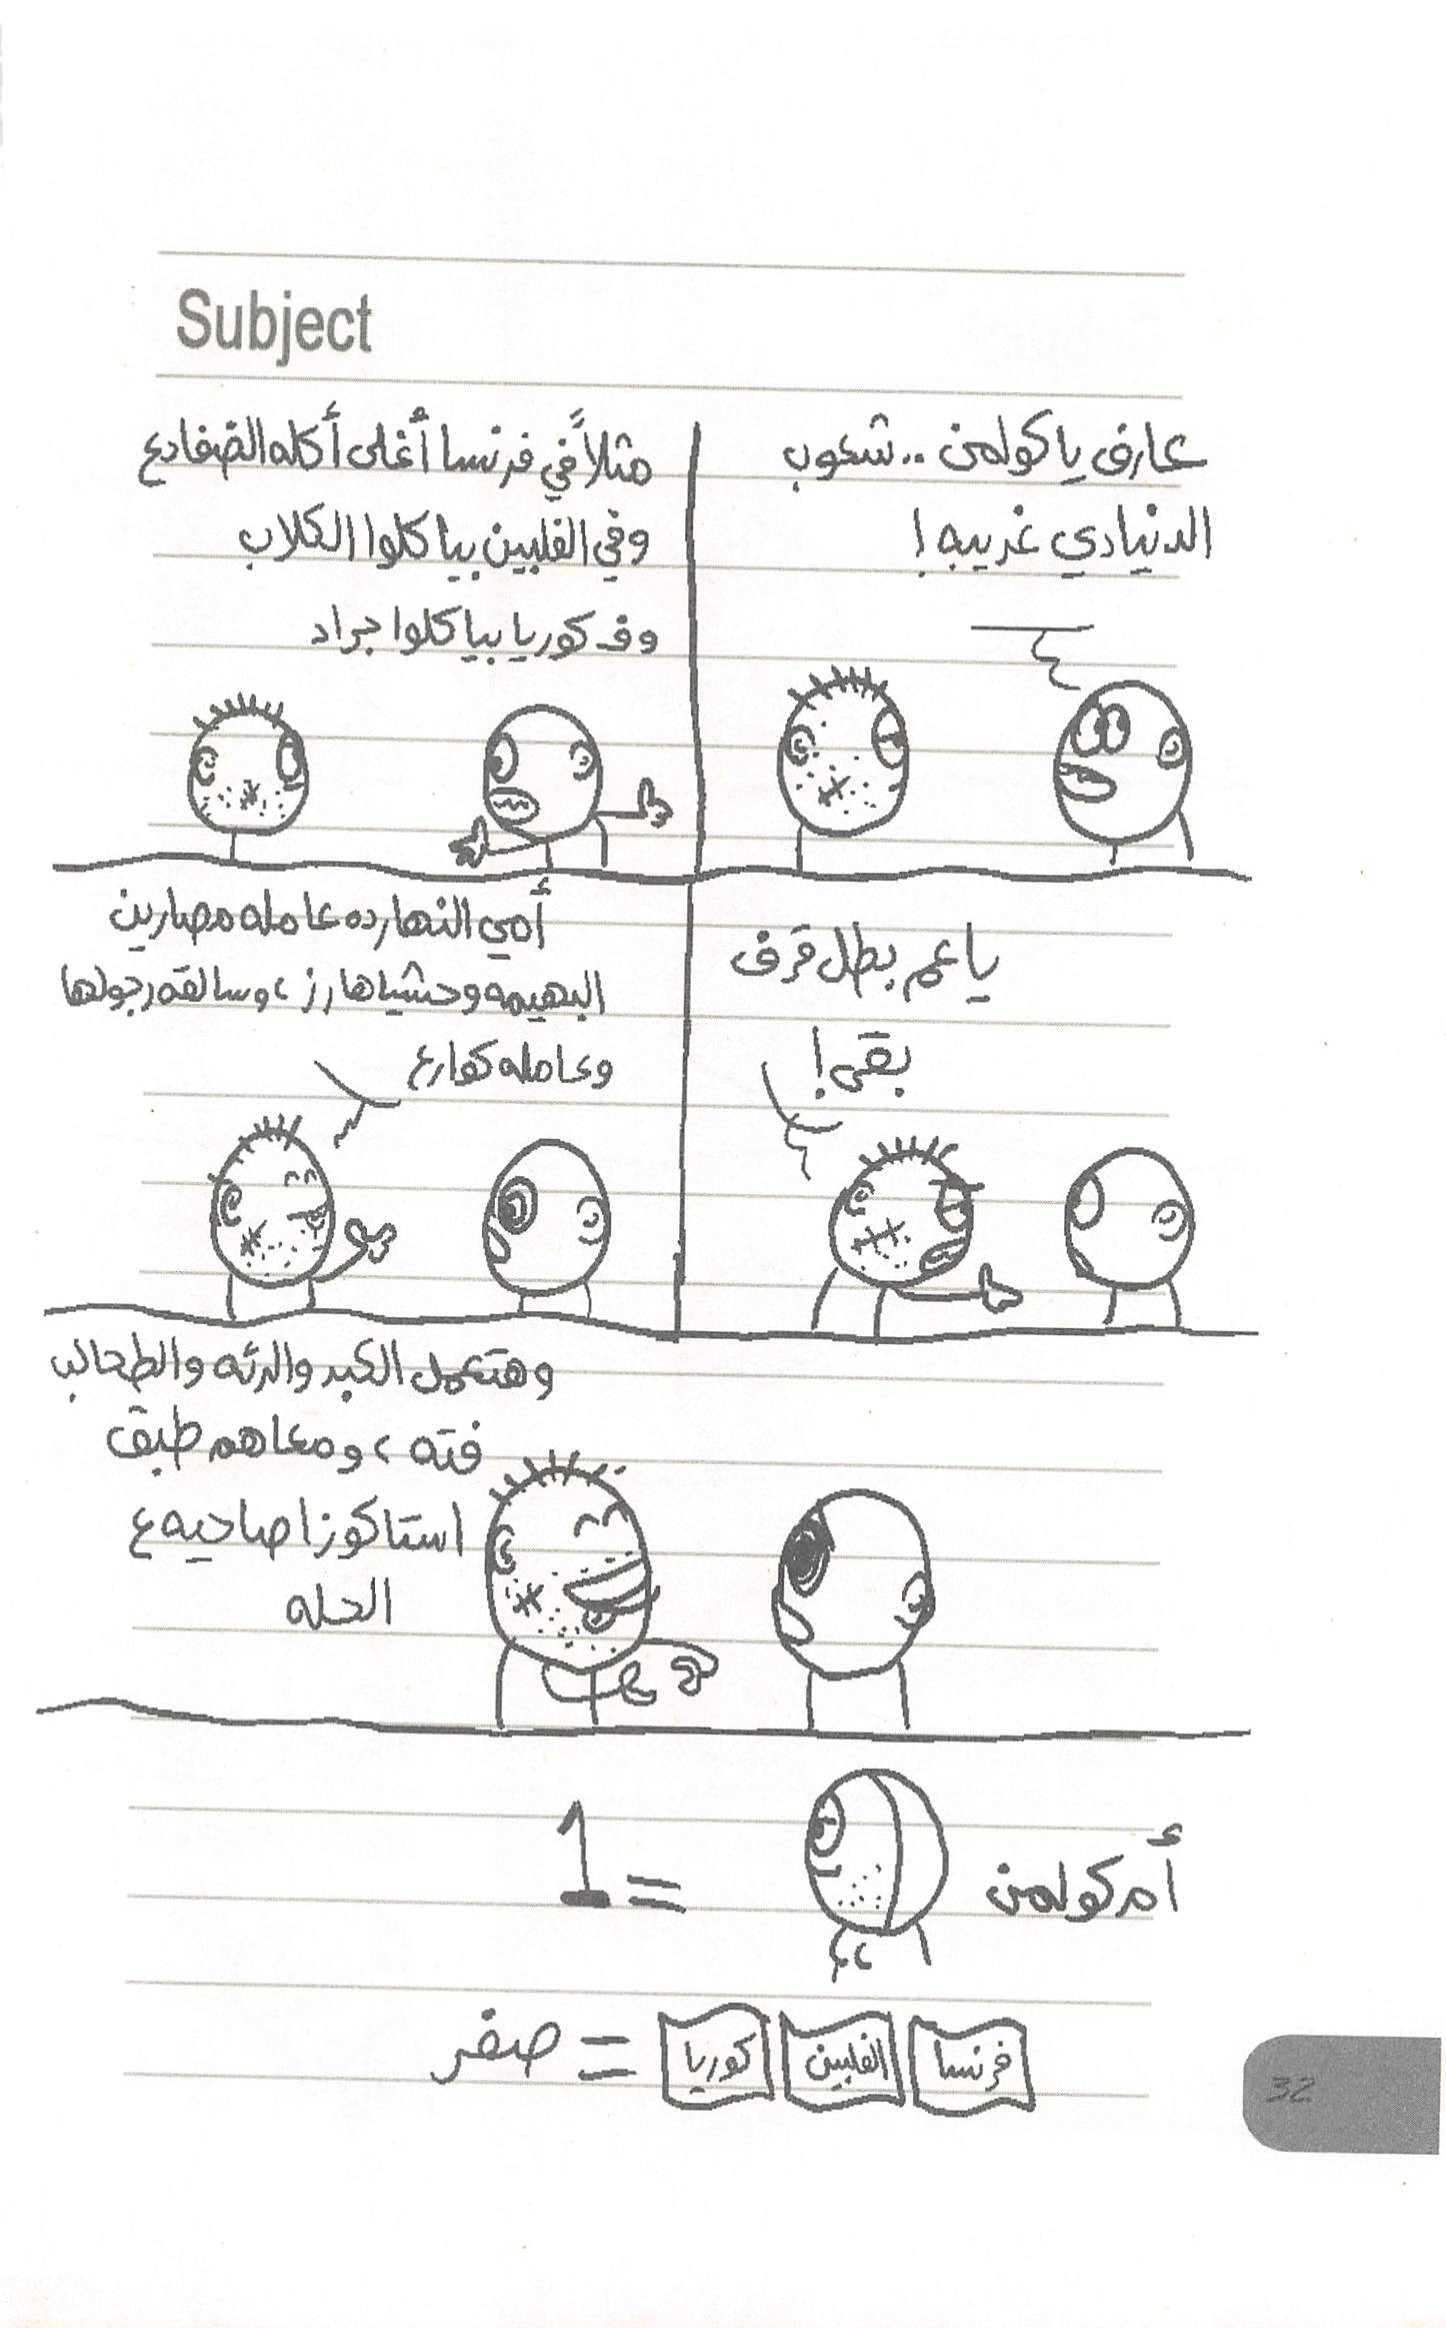 Subject
عارف يا كولمن .. شعوب
الدنيا دي غريبه !
مثلاً في فرنسا أغلى أكله الضفادع
وفي الفلبين بياكلوا الكلاب
وف كوريا بياكلوا جراد
يا عم بطل قرف
بقى !
أمي النهارده عامله مصارين
البهيمه وحشياها رز ، وسالقه رجولها
وعامله كوارع
وهتعمل الكبد والرئه والطحالب
فته ، ومعاهم طبق
استاكوزا صاحيه ع
الحله
أم كولمن = 1
فرنسا الفلبين كوريا = صفر
32